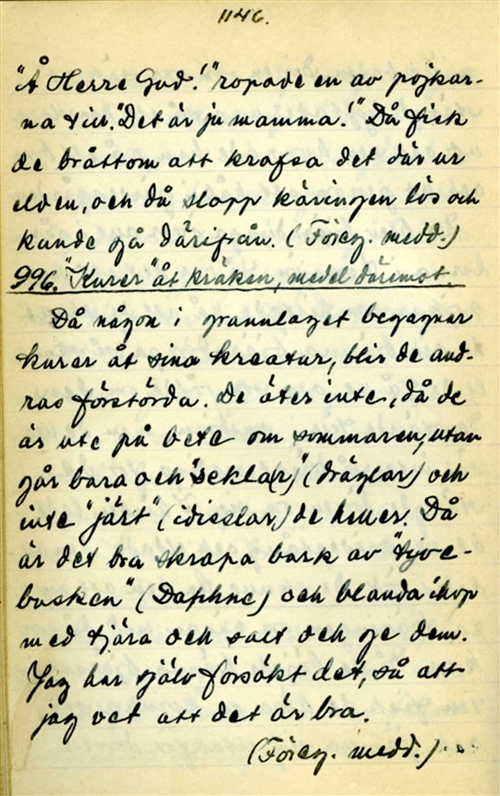 1146.
"Å Herre Gud!" ropade en av pojkar-
na till. "Det är ju mamma!" Då fick
de bråttom att krafsa det där ur
elden, och då slapp käringen lös och
kunde gå därifrån. (Föreg. medd.)
996. "Kurer" åt kräken, medel däremot.
Då någon i grannlaget begagnar
kurer åt sina kreatur, blir de and-
ras förstörda. De äter inte, då de
är ute på bete om sommaren, utan
går bara och "sekla(r)" (dräglar) och
inte "järt" (idisslar) de heller. Då
är det bra skrapa bark av "tyve-
busken" (Daphne) och blanda ihop
med tjära och salt och ge dem.
Jag har själv försökt det, så att
jag vet att det är bra.
(Föreg. medd.)